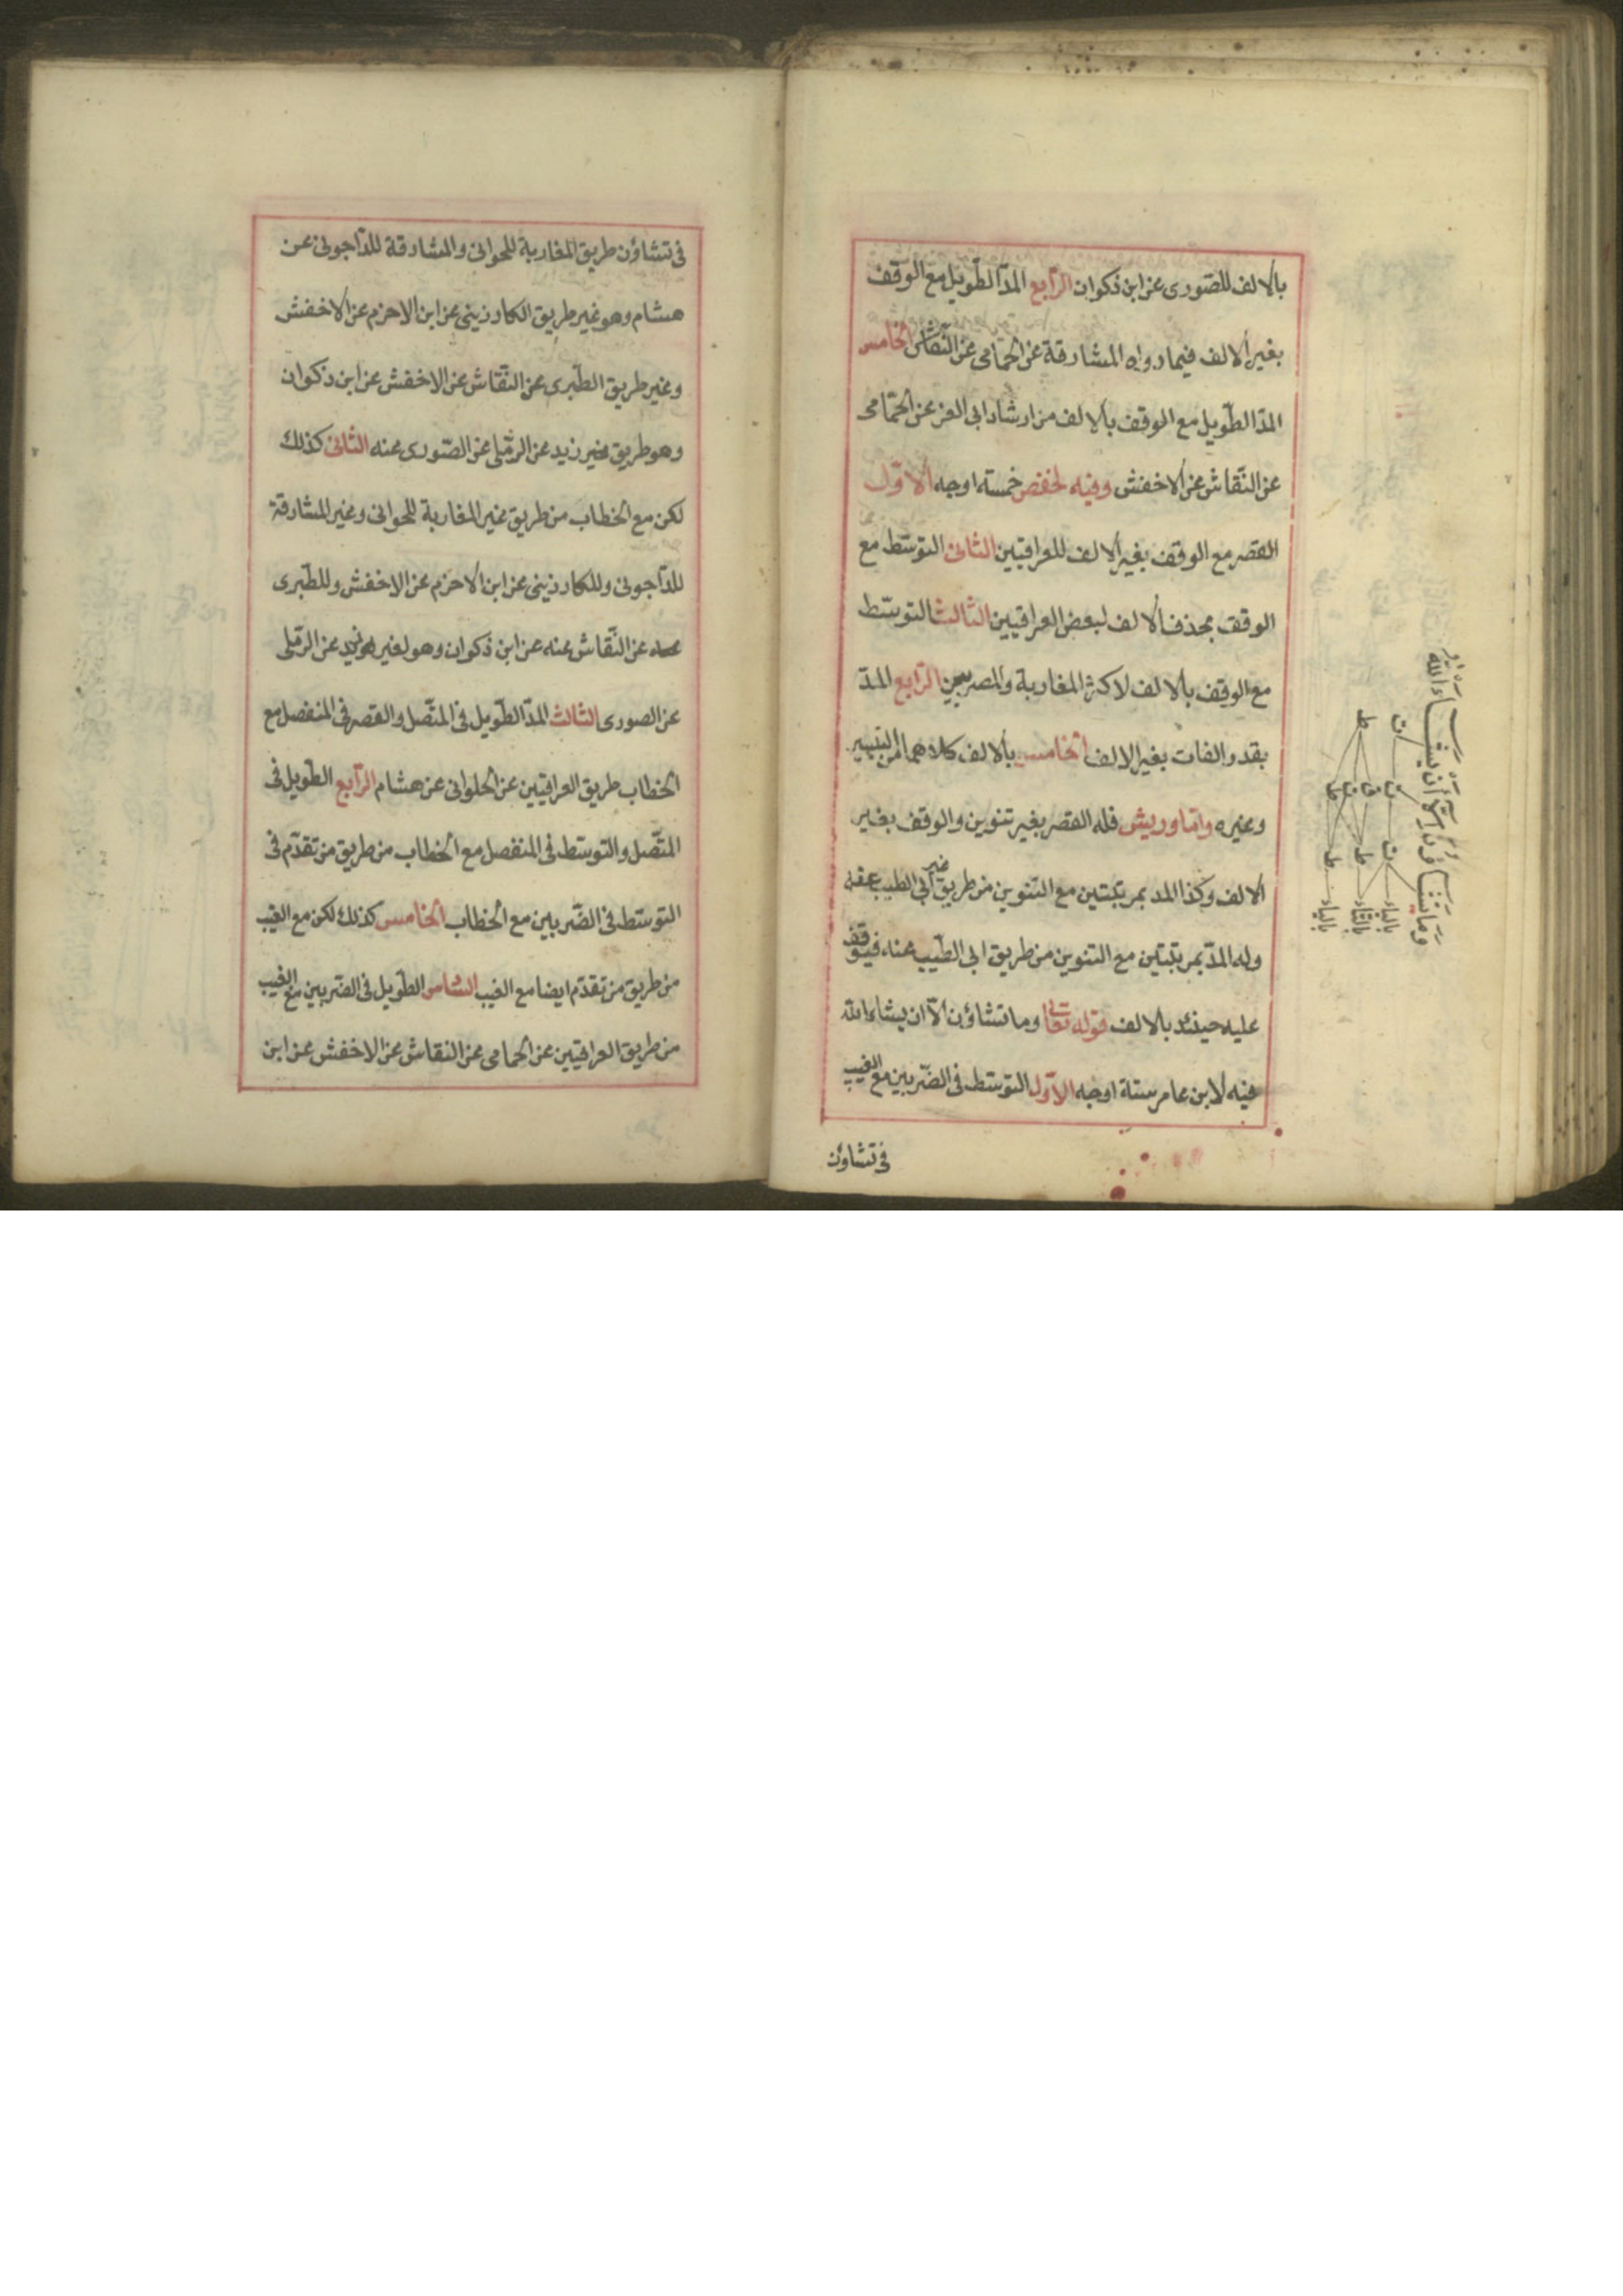 بالالف للصورى عن ابن ذكوان الرابع المدّ الطّويل مع الوقف
بغير الالف فيما رواه المشارقة عن الحمامى عن النّقاش الخامس
المدّ الطّويل مع الوقف بالالف من ارشاد ابى العز عن الحمّامى
عن النّقاش عن الاخفش وفيه لحفص خمسة اوجه الاوّل
القصر مع الوقف بغير الالف للعراقيين الثانى التوسّط مع
الوقف بحذف الالف لبعض العراقيين الثالث التوسّط
مع الوقف بالالف لاكثر المغاربة والمصريين الرابع المدّ
بقدر الفات بغير الالف الخامس بالالف كلاهما من التيسير
وغيره وامّا وريش فله القصر بغير تنوين والوقف بغير
الالف وكذا المد بمرتبتين مع التنوين من طريق غير ابى الطيب عنه
وله المدّ بمرتبتين مع التنوين من طريق ابى الطّيب عنه فيوقف
عليه حينئذ بالالف قوله تعالى وما تشاؤن الّا ان يشاء الله
فيه لابن عامر ستة اوجه الاوّل التوسّط فى الضّربين مع الغيب
فى تشاؤن
وما تشاؤن الا أن يشاء الله
بالياء
بالتاء
بالياء
فى تشاؤن طريق المغاربة للحوانى والمشارقة للدّاجونى عن
هشام وهو غير طريق الكارزينى عن ابن الاحزم عن الاخفش
وغير طريق الطّبرى عن النقّاش عن الاخفش عن ابن ذكوان
وهو طريق غير زيد عن الرمّلى عن الصّورى عنه الثانى كذلك
لكن مع الخطاب من طريق غير المغاربة للحوانى وغير المشارقة
للدّاجونى وللكارزينى عن ابن الاحزم عن الاخفش وللطّبرى
عن النّقاش عنه عن ابن ذكوان وهو لغير زيد عن الرمّلى
عن الصورى الثالث المدّ الطّويل فى المتّصل والقصر فى المنفصل مع
الخطاب طريق العراقيين عن الحلوانى عن هشام الرّابع الطّويل فى
المتّصل والتوسّط فى المنفصل مع الخطاب من طريق من تقدّم فى
التوسّط فى الضّربين مع الخطاب الخامس كذلك لكن مع الغيب
من طريق من تقدّم ايضا مع الغيب السّادس الطّويل فى الضّربين مع الغيب
من طريق العراقيين عن الحمامى عن النقاش عن الاخفش عن ابن